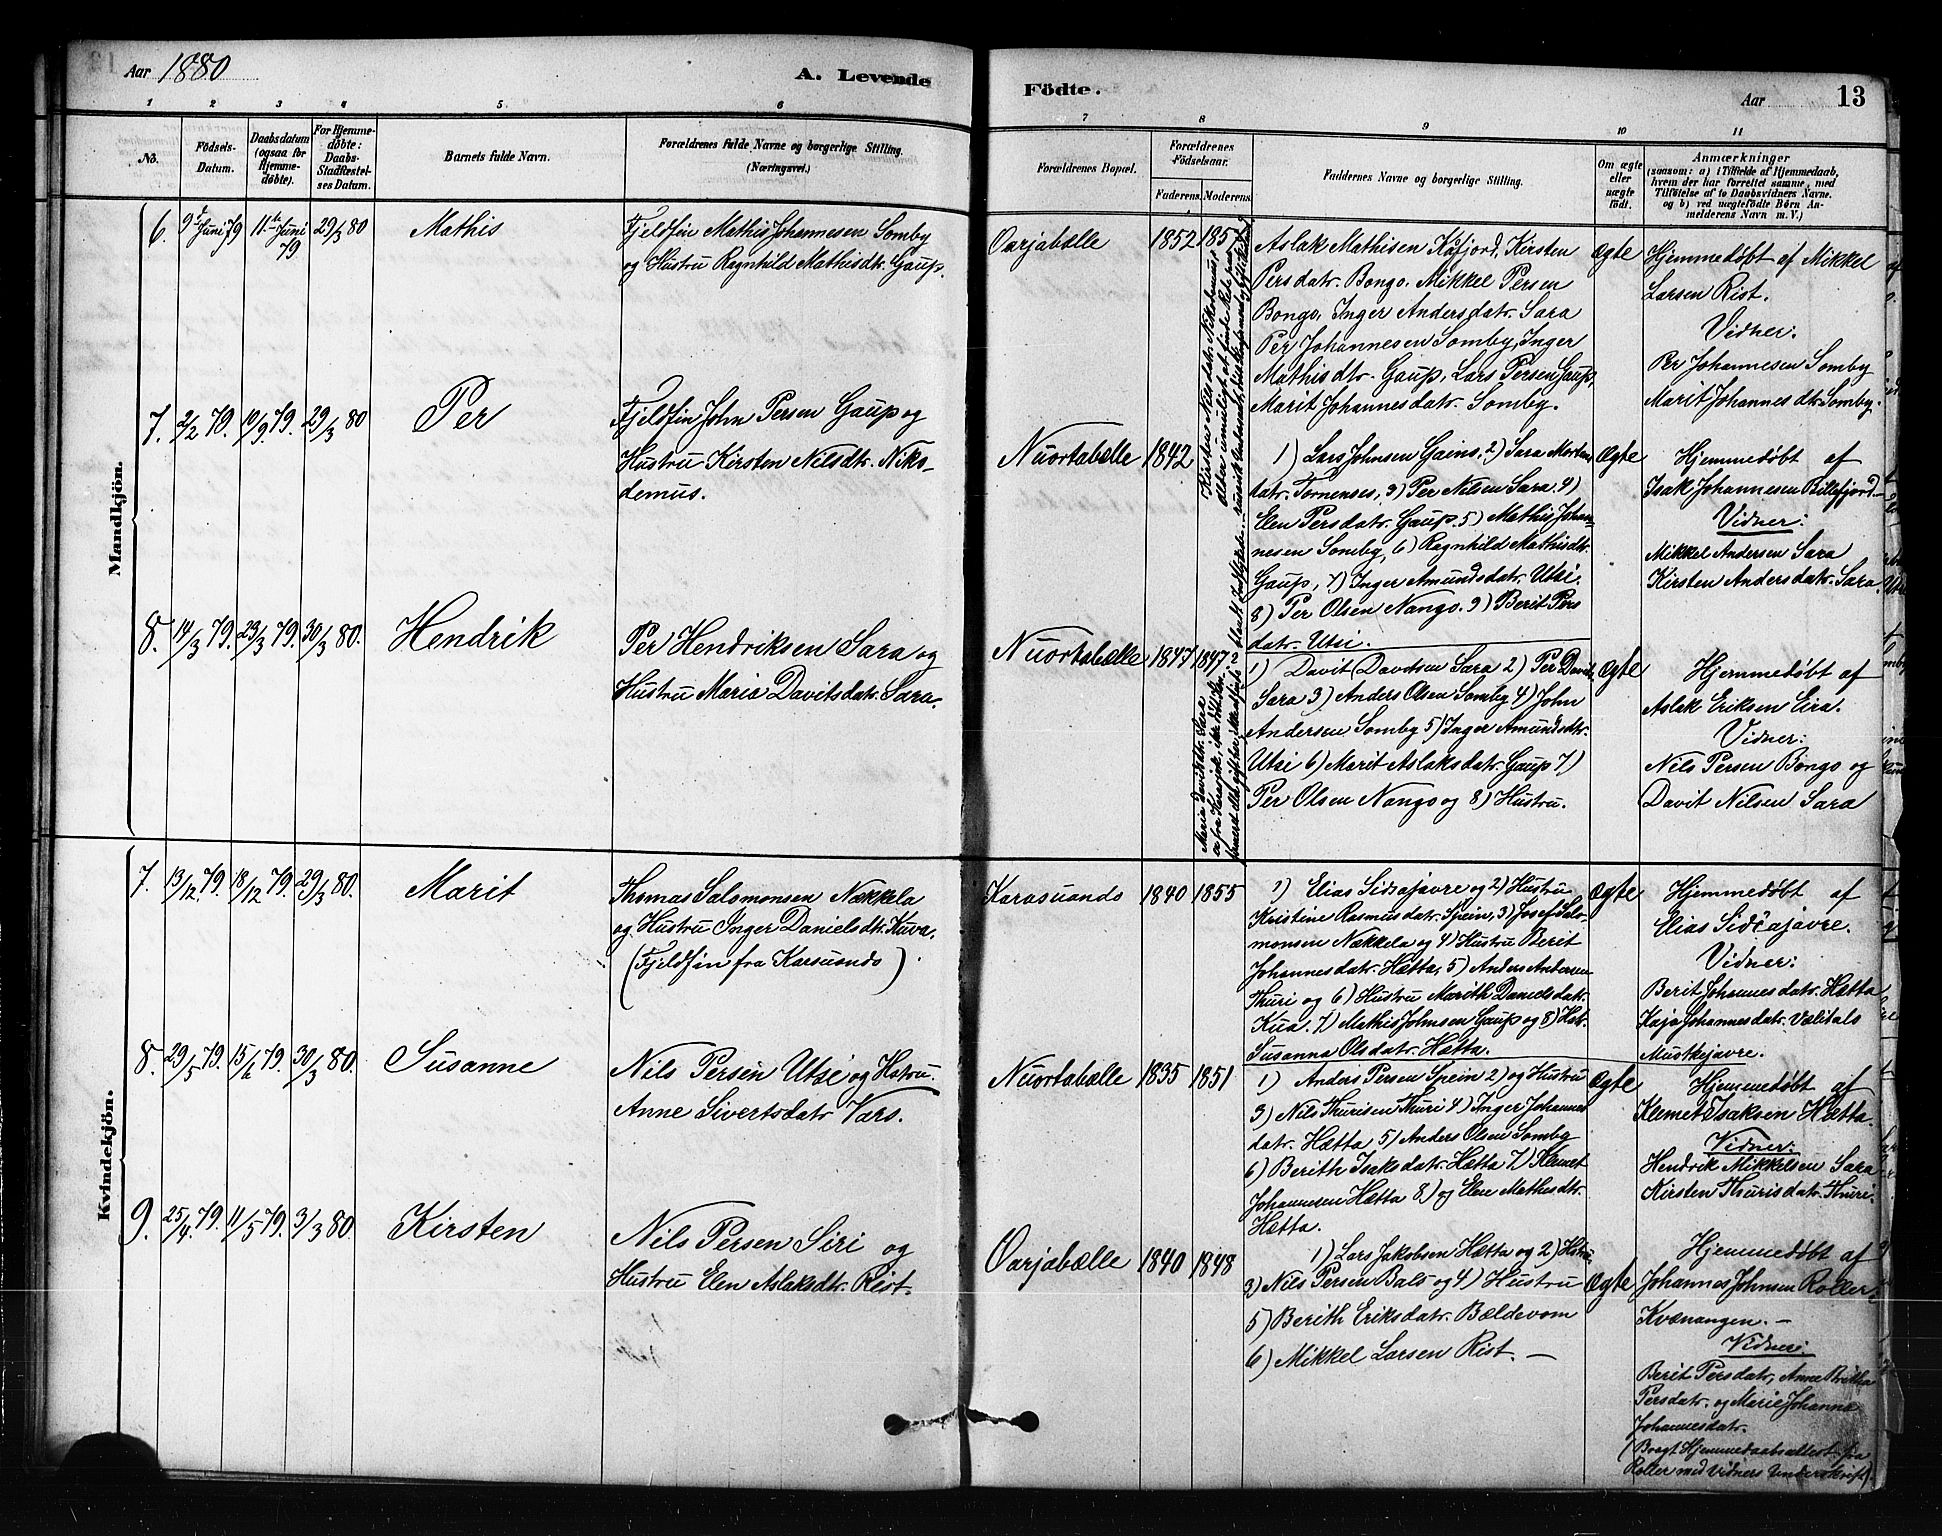 Aar 1880
A. Levende
Födte.
Aar
13
1
2
3
4
5
6
7
8
9
10
11
No.
Födsels-
Datum.
Daabsdatum
(ogsaa for
Hjemme-
döbte).
For Hjemme-
döbte:
Daabs-
Stadfæstel-
ses Datum.
Barnets fulde Navn.
Forældrenes fulde Navne og borgerlige Stilling.
(Næringsvei.)
Forældrenes Bopæl.
Forældrenes
Födselsaar.
Faderens.
Moderens.
Faddernes Navne og borgerlige Stilling.
Om ægte
eller
uægte
födt.
Anmærkninger
(saasom: a) i Tilfælde af Hjemmedaab,
hvem der har forrettet samme, med
Tilföielse af to Daabsvidners Navne.
og b) ved uægtefödte Börn An-
melderens Navn m. V.)
Mandkjön.
6.
9de Juni 79
11te Juni
79
29/3 80
Mathis
Fjeldfin Mathis Johannesen Somby
og Hustru Ragnhild Mathisdtr. Gaup.
Oarjabælle
1852
185
Aslak Mathisen Kåfjord, Kirsten
Persdatr. Bongo. Mikkel Persen
Bongo, Inger Andersdatr. Sara
Per Johannesen Somby, Inger
Mathisdtr. Gaup, Lars Persen Gaup,
Marit Johannesdatr. Somby.
Ægte
Hjemmedøbt af Mikkel
Larsen Rist.
Vidner:
Per Johannesen Somby
Marit Johannesdtr. Somby.
7.
2/2 79.
10/9 79.
29/3 80
Per
Fjeldfin John Persen Gaup og
Hustru Kirsten Nilsdtr. Niko-
demus.
Nuortabælle
1842
Kirsten Nilsdatr. Nikodemus
1) Lars Johnsen Gains, 2) Sara Mortens
datr. Tornenses, 3) Per Nilsen Sara, 4)
Elen Persdatr. Gaup. 5) Mathis Johan-
nesen Somby, 6) Ragnhild Mathisdtr.
Gaup, 7) Inger Amundsdatr. Utsi.
8) Per Olsen Nango. 9) Berit Pers
datr. Utsi.
Ægte
Hjemmedøbt af
Isak Johannesen Billefjord-
Vidner:
Mikkel Andersen Sara
Kirsten Andersdatr. Sara.
8.
14/3 79.
23/3 79.
30/3 80.
Hendrik
Per Hendriksen Sara og
Hustru Maria Davitsdatr. Sara.
Nuortabælle
1847
1847.?
1) Davit Davitsen Sara 2) Per Davits.
Sara 3) Anders Olsen Somby 4) John
Andersen Somby 5) Inger Amundsdtr.
Utsi 6) Marit Aslaksdatr. Gaup 7)
Per Olsen Nango og 8) Hustru.
Ægte
Hjemmedøbt af
Aslak Eriksen Eira.
Vidner:
Nils Persen Bongo og
Davit Nilsen Sara
Kvindekjön.
7.
13/12 79.
18/12 79.
29/3 80.
Marit
Thomas Salomonsen Nækkela
og Hustru Inger Danielsdtr. Kuva.
(Fjeldfin fra Karsuondo)
Karasuando
1840
1855
1) Elias Sidrajavre og 2) Hustru
Kristine Rasmusdatr. Spein, 3) Josef Salo-
monsen Nækkela og 4) Hustru Berit
Johannesdatr. Hætta, 5) Anders Andersen
Thuri og 6) Hustru Marith Danielsdatr.
Kua. 7) Mathis Johnsen Gaup og 8) Hstr.
Susanna Olsdatr. Hætta.
Ægte
Hjemmedøbt af
Elias Sidrajavre.
Vidner:
Berit Johannesdatr. Hætta
Kaja Johannesdatr. Vælitals
Mustkejavre.
8.
29/5 79.
15/6 79.
30/3 80.
Susanne
Nils Persen Utsi og Hstru.
Anne Sivertsdatr. Vars.
Nuortabælle
1835
1851
1) Anders Persen Spein 2) og Hustru
3) Nils Thurisen Thuri 4) Inger Johannes
datr. Hætta, 5) Anders Olsen Somby
6) Berith Isaksdatr. Hætta 7) Klemet
Johannesen Hætta 8) og Elen Mathisdtr.
Hætta.
Ægte
Hjemmedøbt af
Klemet Isaksen Hætta.
Vidner:
Hendrik Mikkelsen Sara
Kirsten Thurisdatr. Thuri.
9.
25/4 79.
11/5 79.
31/3 80.
Kirsten
Nils Persen Siri og
Hustru Elen Aslaksdtr. Rist.
Oarjabælle
1840
1848
1) Lars Jakobsen Hætta og 2) Hstru
3) Nils Persen Bals og 4) Hustru
5) Berith Eriksdatr. Bældevom
6) Mikkel Larsen Rist. —
Ægte
Hjemmedøbt af
Johannes Johnsen Roller
Kvænangen. —
Vidner:
Berit Persdatr, Anne Britha
Persdatr. og Marie Johanne
Johannesdatr.
(Bragt Hjemmedaabsattest fra
Roller med Vidners Underskrift).